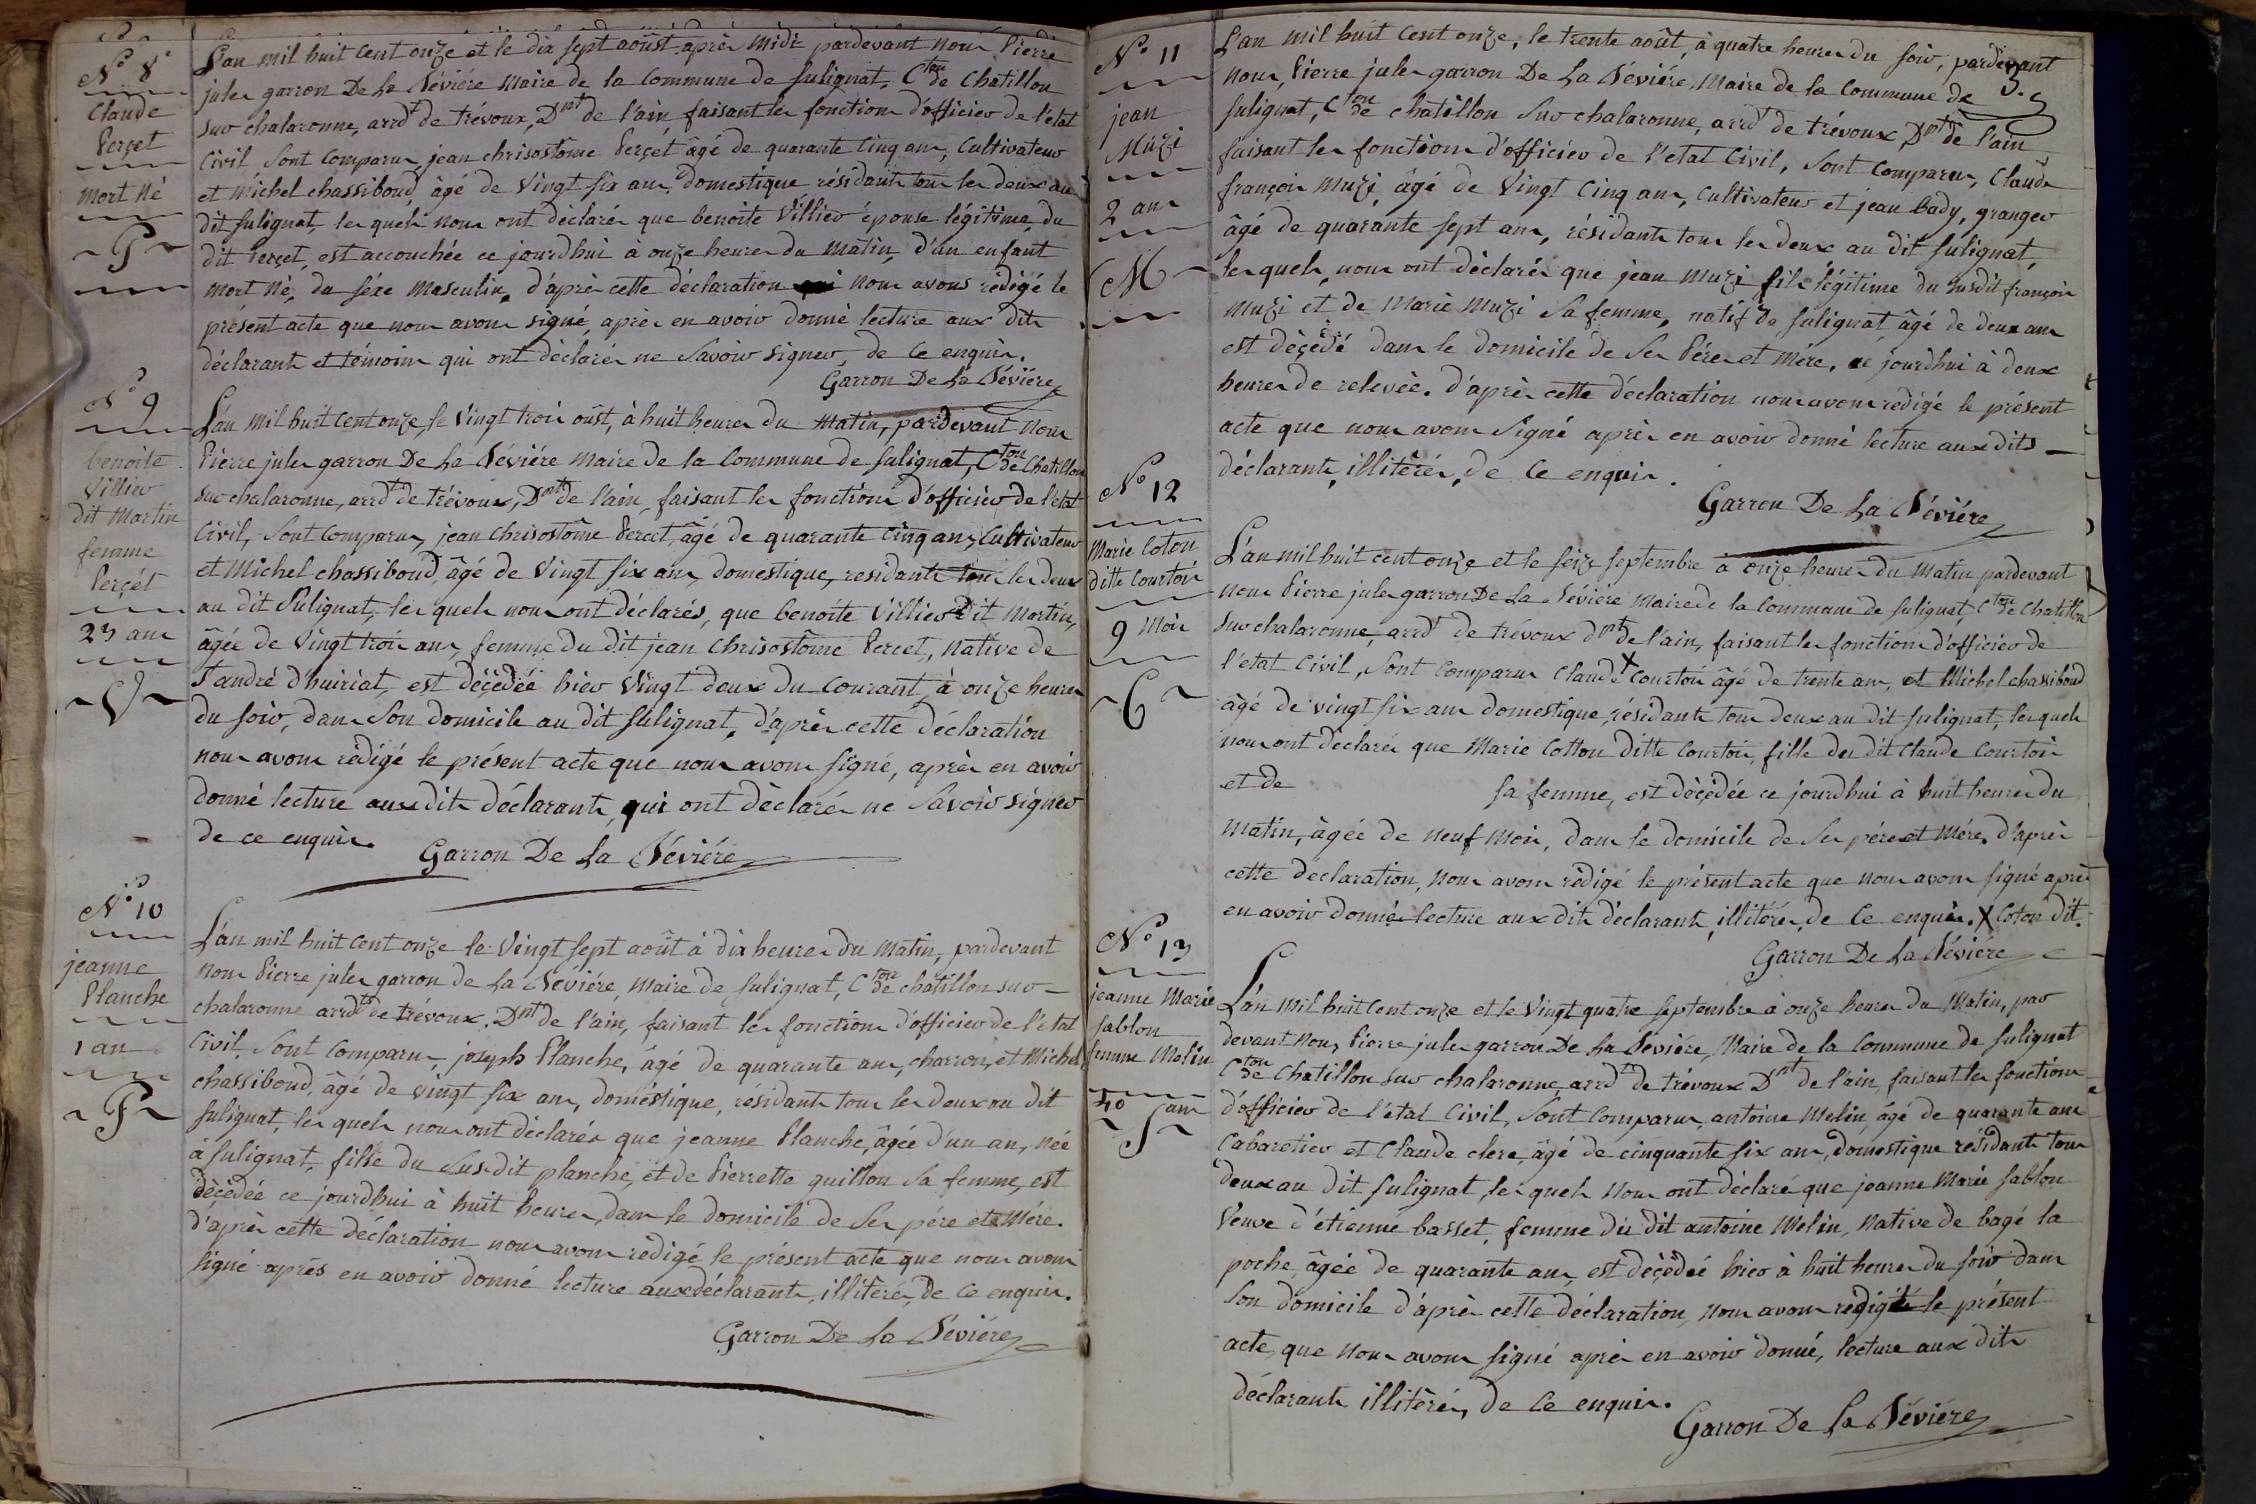 N° 8
Claude
Perçet
mort né
P
L'an mil huit cent onze et le dix sept aoûst après midi pardevant nous Pierre
jules garron De La Sévière maire de la commune de Sulignat, C.ton de Chatillon
sur chalaronne, arrd.t de trévoux, D.mt de l'ain, faisant les fonctions d'officier de l'etat
Civil sont comparus, jean chrisostôme Perçet âgé de quarante cinq ans, cultivateur
et Michel chassiboud, âgé de vingt six ans, domestique résidants tous les deux au
dit Sulignat, les quels nous ont déclarés que benoîte Villier épouse légitime, du
dit Perçet, est accouchée ce jourdhui à onze heures du matin, d'un enfant
mort né, du séxe masculin, d'après cette déclaration nous avons rédigé le
présent acte que nous avons signé, après en avoir donné lecture aux dits
déclarants et témoins qui ont déclarés ne savoir signer, de ce enquis.
Garron De La Sévière
N° 9
benoite
Villier
dit Martin
femme
Perçét
23 ans
L'an mil huit cent onze, le vingt trois oûst, à huit heures du matin, pardevant nous
Pierre jules garron De La Sévière maire de la commune de Sulignat, C.ton de Chatillon
sur chalaronne, arrd.t de trévoux, D.mt de l'ain, faisant les fonctions d'officier de l'etat
Civil, sont comparus, jean chrisostôme Percet, âgé de quarante cinq ans, cultivateur
et Michel chassiboud, âgé de vingt six ans, domestique, residants tous les deux
au dit Sulignat, les quels nous ont déclarés, que benoite Villier dit Martin,
âgée de vingt trois ans, femme du dit jean chrisostôme Percet, native de
S.t andré d'huiriat, est décédée hier vingt deux du courant, à onze heures
du soir, dans son domicile au dit Sulignat, d'après cette déclaration
nous avons rédigé le présent acte que nous avons signé, après en avoir
donné lecture aux dits déclarants, qui ont déclarés ne savoir signer
de ce enquis.
Garron De La Sévière
N° 10
jeanne
Planche
1 an
P
L'an mil huit cent onze le vingt sept août à dix heures du matin, pardevant
nous Pierre jules garron de La Sévière, maire de Sulignat, C.ton de chatillon sur
chalaronne arrd.t de trévoux. D.mt de l'ain, faisant les fonctions d'officier de l'etat
Civil, sont comparus, joseph Planche, âgé de quarante ans, charron, et Michel
chassiboud, âgé de vingt six ans, doméstique, résidants tous les deux au dit
Sulignat, les quels nous ont déclarés que jeanne Planche, âgée d'un an, née
à Sulignat, fille du susdit planche, et de Pierrette guillon sa femme, est
décédée ce jourdhui à huit heures, dans le domicile de ses pére et mére.
d'après cette déclaration nous avons rédigé le présent acte que nous avons
signé après en avoir donné lecture aux déclarants, illitérés, de ce enquis.
Garron De La Sévière
N° 11
jean
Muzi
2 ans
M
L'an mil huit cent onze, le trente août, à quatre heures du soir, pardevant
nous, Pierre jules garron De La Sévière, Maire de la commune de
Sulignat, C.ton de chatillon sur chalaronne, arrd.t de trévoux, D.mt de l'ain
faisant les fonctions d'officier de l'etat Civil, sont comparus, Claude
françois muzi, âgé de vingt cinq ans, cultivateur et jean bady, granger
âgé de quarante sept ans, résidants tous les deux au dit Sulignat,
les quels, nous ont déclarés que jean muzi fils légitime du susdit françois
muzi et de marie muzi sa femme, natif de Sulignat, âgé de deux ans
est décédé dans le domicile de ses Pére et Mére, ce jourdhui à deux
heures de relevée. d'après cette déclaration nous avons redigé le présent
acte que nous avons signé après en avoir donné lecture aux dits
déclarants, illitérés, de ce enquis.
Garron De La Sévière
N° 12
Marie Coton
ditte Courtois
9 mois
C
L'an mil huit cent onze et le seize septembre à onze heures du matin pardevant
nous Pierre jules garron De La Sévière Maire de la commune de Sulignat, C.ton de Chatillon
sur chalaronne, arrd.t de trévoux d.mt de l'ain, faisant les fonctions d'officier de
l'etat Civil, sont comparus Claude X Courtois âgé de trente ans, et Michel chassiboud
âgé de vingt six ans domestique, résidants tous deux au dit Sulignat, les quels
nous ont déclarés que Marie Cotton ditte Courtois, fille du dit Claude Courtois
et de sa femme, est décédée ce jourdhui à huit heures du
matin, âgée de neuf mois, dans le domicile de ses pére et Mére. d'après
cette déclaration, nous avons rédigé le présent acte que nous avons signé après
en avoir donné lecture aux dits déclarants, illitérés, de ce enquis. X Coton dit.
Garron De La Sévière
N° 13
jeanne Marie
Sablon
femme Melin
40 ans
S
L'an mil huit cent onze et le vingt quatre septembre à onze heures du Matin, par
devant nous, Pierre jules garron De La Sévière, Maire de la commune de Sulignat
C.ton de Chatillon sur chalaronne, arrd.t de trévoux D.mt de l'ain, faisant les fonctions
d'officier de l'état Civil, sont comparus, antoine Melin, âgé de quarante ans
Cabaretier et Claude clerc, âgé de cinquante six ans, domestique résidants tous
deux au dit Sulignat, les quels nous ont déclaré que jeanne Marie Sablon
veuve d'étienne basset, femme du dit antoine Melin, native de bagé la
poche, âgée de quarante ans, est décédée hier à huit heures du soir dans
son domicile d'après cette déclaration, nous avons redigé le présent
acte, que nous avons signé après en avoir donné, lecture aux dits
déclarants illitérés, de ce enquis.
Garron De La Sévière